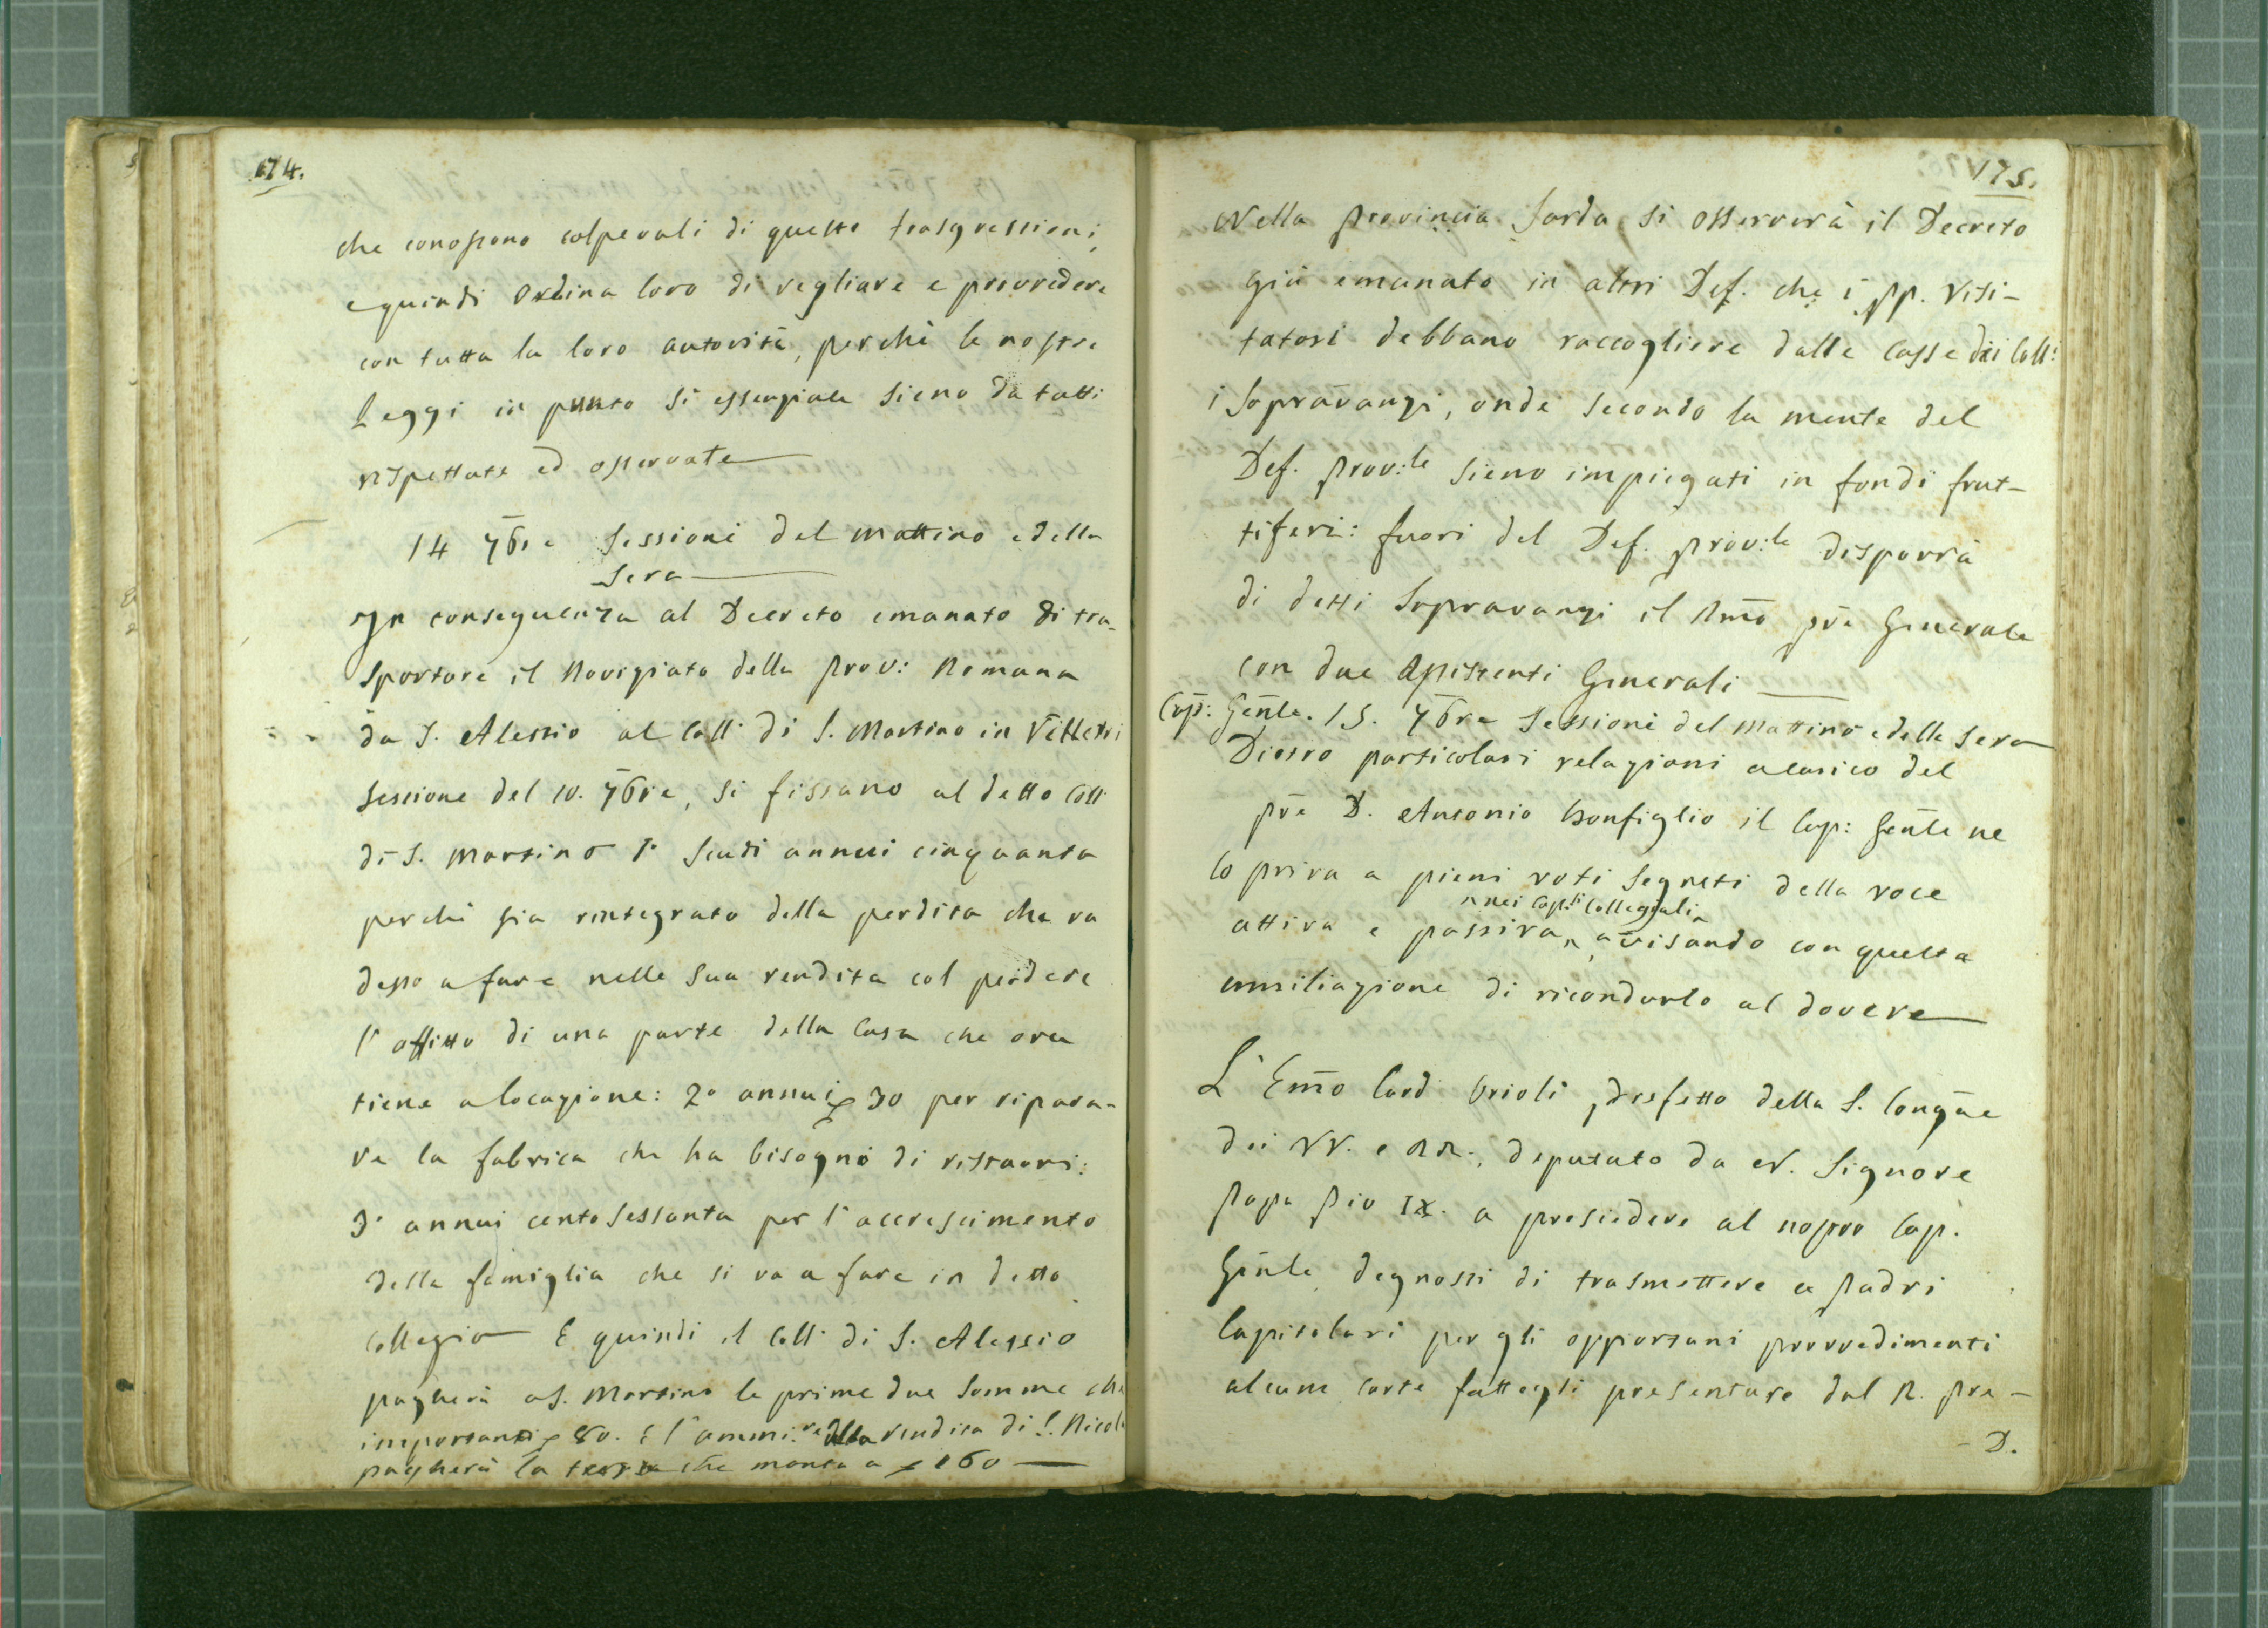 174.
che conoscono colpevoli di queste trasgressioni,
e quindi ordina loro di vegliare e provvedere
con tutta la loro autorità, perchè le nostre
leggi in punto sì essenziale sieno da tutti
rispettate ed osservate
14 7bre Sessioni del mattino e della
Sera
In conseguenza al Decreto emanato di tra-
sportare il Novizziato della Prov: Romana
da S. Alessio al Coll: di S. Martino in Velletri
Sessione del 10. 7bre, si fissano al detto Coll:
di S. Martino 1° Scudi annui cinquanta
perchè sia rintegrato della perdita che va
desso a fare nelle sua rendita col perdere
l'affitto di una parte della Casa che ora
tiene a locazione: 2° annui 30 per ripara-
re la fabrica che ha bisogno di ristauri:
3° annui cento sessanta per l'accrescimento
della famiglia che si va a fare in detto
Collegio E quindi il Coll: di S. Alessio
pagherà a S. Martino le prime due somme che
importano 80. E l'ammi:ne della rendita di S. Nicola
pagherà la terza che monta a 160
175.
Nella Provincia Sarda si osserverà il Decreto
già emanato in altri Def. che i PP. Visi-
tatori debbano raccogliere dalle Casse dei Coll:
i Sopravanzi, onde secondo la mente del
Def. Prov:le sieno impiegati in fondi frut-
tiferi: fuori del Def. Prov:le disporrà
di detti Sopravanzi il Rmo Pre Generale
con due Assistenti Generali
Cap: Genle. 15. 7bre Sessioni del mattino e della sera
Dietro particolari relazioni a carico del
Pre D. Antonio Bonfiglio il Cap: Genle ne
lo priva a pieni voti segreti della voce
nei Cap:li Collegiali
attiva e passiva, avisando con questa
umiliazione di ricondurlo al dovere
L'Emo Card: Orioli, Prefetto della S. Congne
dei VV. e RR., deputato da N. Signore
Papa Pio IX. a presiedere al nostro Cap.
Genle, degnossi di trasmettere a Padri
Capitolari per gli opportuni provvedimenti
alcune carte fattegli presentare dal R. Pre
D.